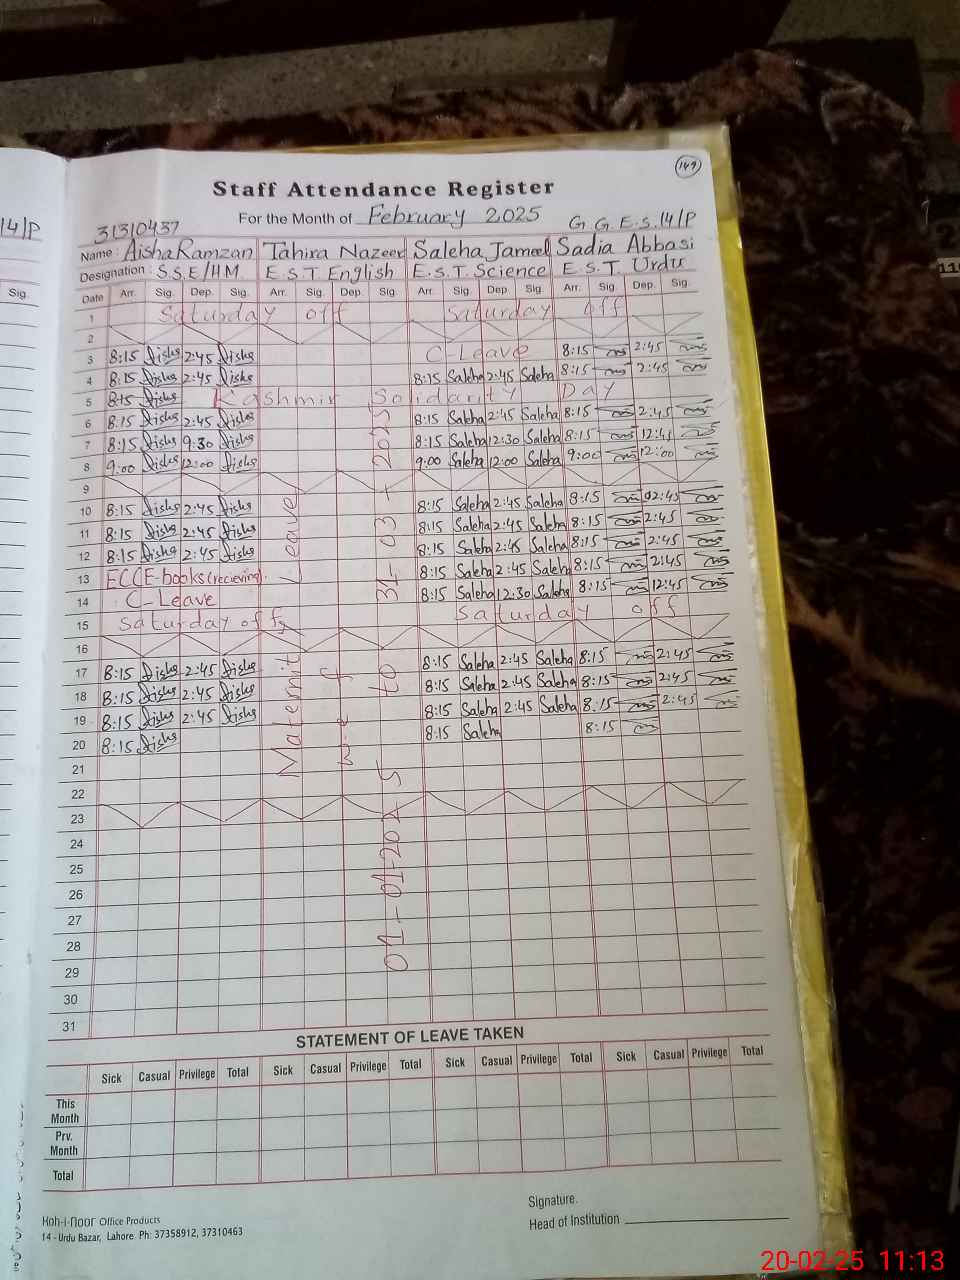 149
Staff Attendance Register
For the Month of February 2025 G.G.E.S. 14/P
14/P
31310437
Name : Aisha Ramzan Tahira Nazeer Saleha Jameel Sadia Abbasi
Designation : S.S.E/HM E.S.T. English E.S.T. Science E.S.T. Urdu
Sig. Date Arr. Sig. Dep. Sig. Arr. Sig. Dep. Sig. Arr. Sig. Dep. Sig. Arr. Sig. Dep. Sig.
1 Saturday off Saturday off
2
3 8:15 2:45 C-Leave 8:15 2:45
4 8:15 2:45 8:15 Saleha 2:45 Saleha 8:15 2:45
5 8:15 Kashmir Solidarity Day
6 8:15 2:45 8:15 Saleha 2:45 Saleha 8:15 2:45
7 8:15 9:30 8:15 Saleha 12:30 Saleha 8:15 12:45
8 9:00 12:00 9:00 Saleha 12:00 Saleha 9:00 12:00
9
10 8:15 2:45 8:15 Saleha 2:45 Saleha 8:15 02:45
11 8:15 2:45 8:15 Saleha 2:45 Saleha 8:15 2:45
12 8:15 2:45 8:15 Saleha 2:45 Saleha 8:15 2:45
13 ECCE-books (recieving). 8:15 Saleha 2:45 Saleha 8:15 2:45
14 C-Leave 8:15 Saleha 12:30 Saleha 8:15 12:45
15 Saturday off Saturday off
16
17 8:15 2:45 8:15 Saleha 2:45 Saleha 8:15 2:45
18 8:15 2:45 8:15 Saleha 2:45 Saleha 8:15 2:45
19 8:15 2:45 8:15 Saleha 2:45 Saleha 8:15 2:45
20 8:15 8:15 Saleha 8:15
21
22
23
24
25
26
27
28
29
30
31
Maternity Leave
w.e.f
01-01-2025 to 31-03-2025
STATEMENT OF LEAVE TAKEN
Sick Casual Privilege Total Sick Casual Privilege Total Sick Casual Privilege Total Sick Casual Privilege Total
This Month
Prv. Month
Total
Koh-i-noor Office Products
14 - Urdu Bazar, Lahore. Ph: 37358912, 37310463
Signature.
Head of Institution
20-02-25 11:13